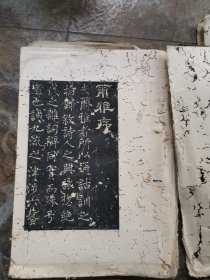 爾雅序
夫爾雅者所以通詁訓之
指歸敘詩人之興詠揔絕
代之離詞辯同實而殊号
者也誠九流之津涉六藝